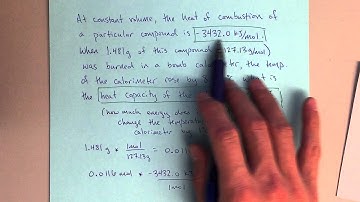 At constant volume, the heat of combustion of
a particular compound is -3432.0 kJ/mol.
When 1.481g of this compound 127.13g/mol)
was burned in a bomb calorimeter, the temp.
of the calorimeter rose by what is
the heat capacity of the
(how much energy does
change the temperature
calorimeter by
1.481g * 1mol / 127.13g = 0.011
0.0116 mol * -3432.0 kJ / 1mol